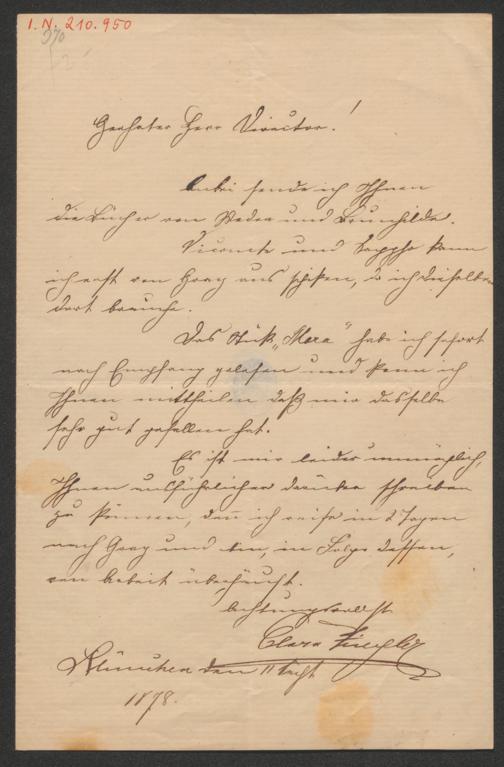 I.N. 210.950
Geehrter Herr Director!
Anbei sende ich Ihnen
die Bücher von Medea und Brunhilde.
Vicomte und Sappho kann
ich erst von Graz aus schicken, da ich dieselben
dort brauche.
Das Stück „Mera" habe ich sofort
nach Empfang gelesen und kann ich
Ihnen mittheilen daß mir dasselbe
sehr gut gefallen hat.
Es ist mir leider unmöglich,
Ihnen ausführlicher darüber schreiben
zu können, denn ich reise in 2 Tagen
nach Graz und bin, in Folge dessen,
von Arbeit überhäuft.
Achtungsvollst
Clara Ziegler
München den 11 Sept
1878.